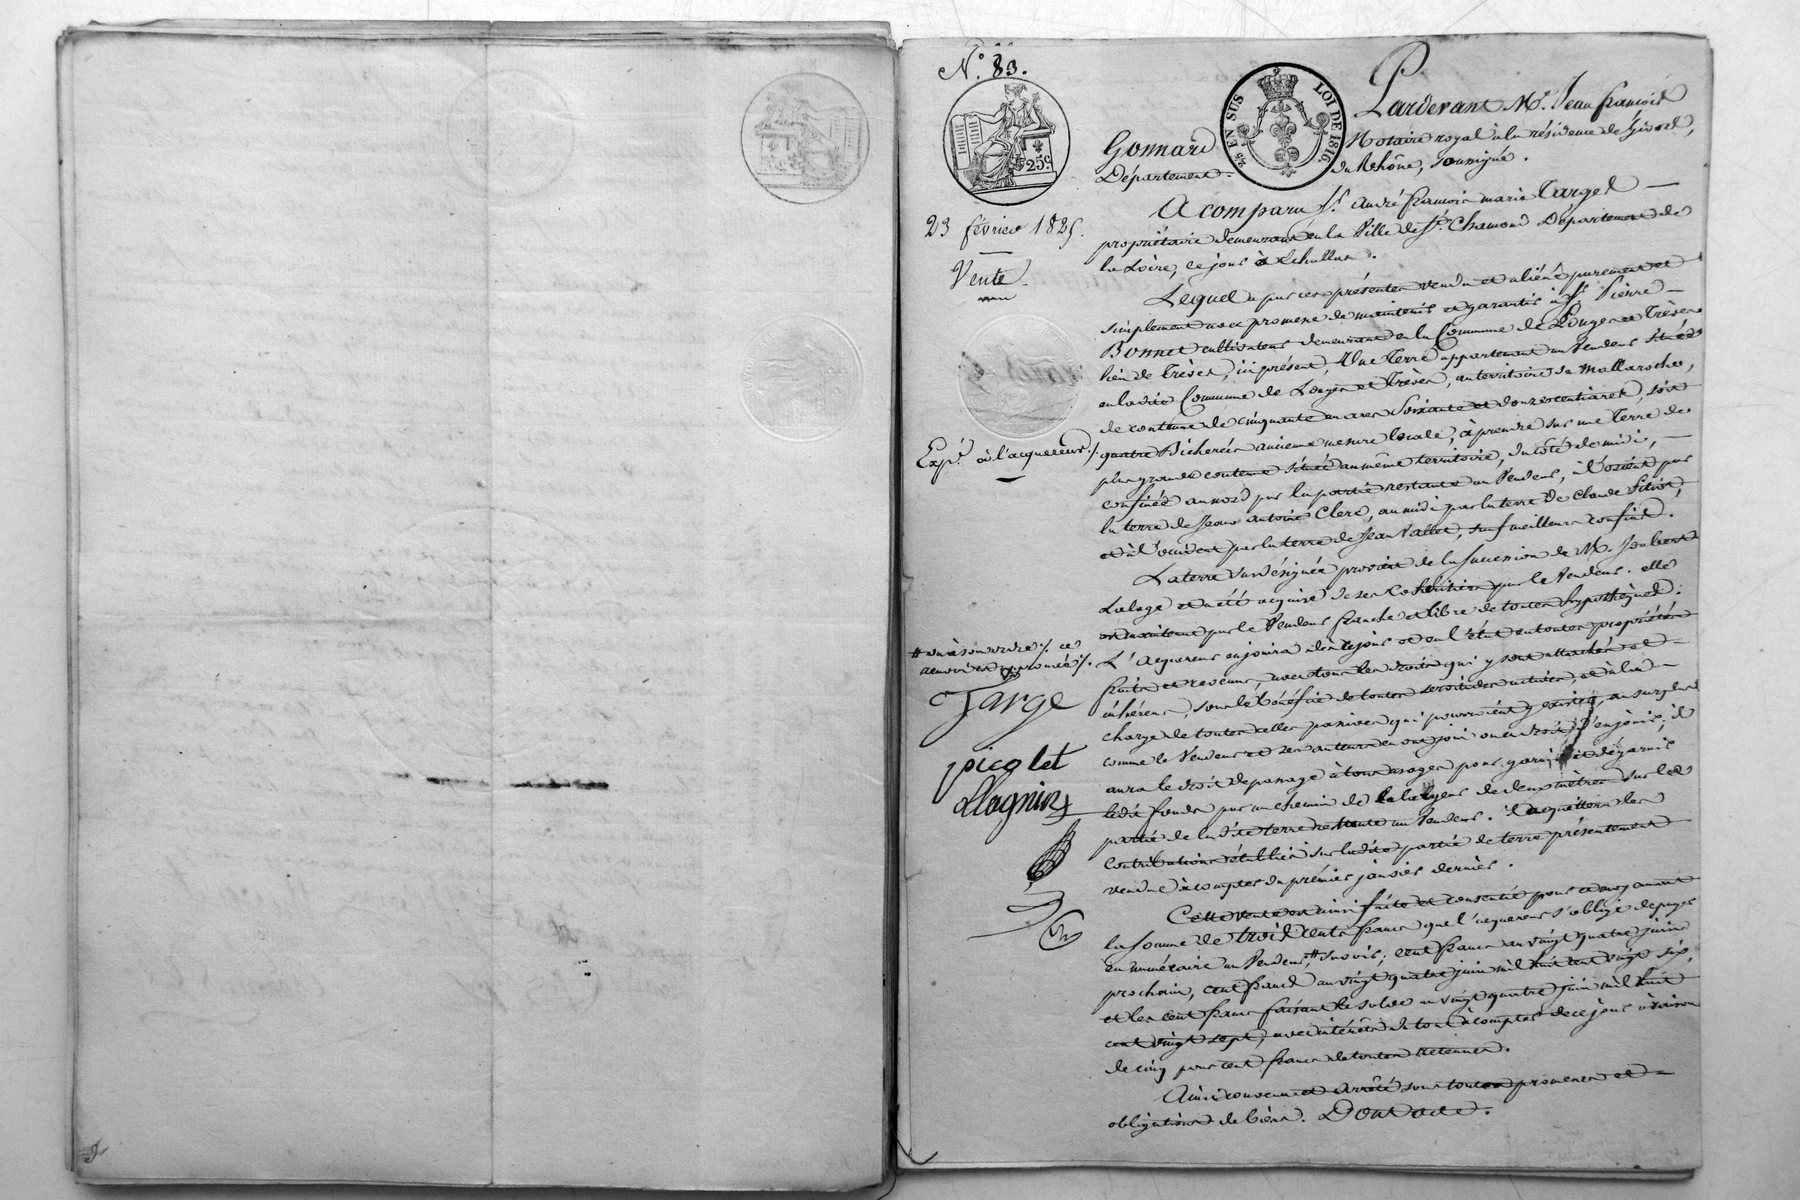 N.° 83.
25 EN SUS
LOI DE 1816
25c.
Pardevant M.e Jean françois
Gonnard Notaire royal à la résidence de Givord,
Département du Rhône, soussigné.
23 février 1825.
Vente
A comparu S.r andré françois marie Targe
propriétaire demeurant en la Ville de S.t Chamond Département de
la Loire, ce jour à Echallas.
Lequel a par ces présentes vendu et aliéné purement et
simplement avec promesse de maintenir et garantir à S.r Pierre
Bonnet cultivateur demeurant en la Commune de Longes et Trèves
lieu de Trèves, ici présent, Une Terre appartenant au Vendeur située
en ladite Commune de Longes et Trèves, au territoire de Mallaroche,
de contenue de cinquante un ares soixante et douze centiares, soit
Exp.n à l'acquereur
quatre Bicherées ancienne mesure locale, à prendre sur une Terre de
plus grande contenue située au même territoire, du côté de midi,
confinée au nord par la partie restante au Vendeur, à l'orient par
la terre de Jean antoine Clerc, au midi par la terre de Claude
et à l'occident par la terre de Jean Vallet, sauf meilleurs confins.
La terre sus désignée provient de la succession de M. Joubert
Lalage et a été acquise de ses Cohéritiers par le Vendeur. elle
est maintenue par le Vendeur franche et libre de toutes hypothèques.
L'acquereur en jouira dès ce jour et en l'état en toutes propriétés
fruits et revenus, avec tous les droits qui y sont attachés et
inhérens, sous le bénéfice de toutes servitudes actives, et à la
charge de toutes celles passives qui pourraient y exister, au surplus
comme le Vendeur et ses auteurs en ont joui ou eu droit d'en jouir; il
aura le droit de passage à tous usages pour garnir et dégarnir
ledit fonds par un chemin de la largeur de deux mètres sur la
partie de la dite terre restante au Vendeur. il acquittera les
contributions établies sur ladite partie de terre présentement
vendue à compter du premier janvier dernier.
# ou à son ordre /. ce
renvoi est approuvé /.
Targe
picolet
Magnin
Cette vente est ainsi faite et consentie pour et moyennant
la somme de trois cents francs que l'acquereur s'oblige de payer
en numéraire au Vendeur # savoir; cent francs au vingt quatre juin
prochain, cent francs au vingt quatre juin mil huit cent vingt six,
et les cent francs faisant le solde au vingt quatre juin mil huit
cent vingt sept, avec intérêts du tout à compter de ce jour à raison
de cinq pour cent francs de toutes retenues.
Ainsi convenu et arrêté sous toutes promesses et
obligations de biens. Dont acte.